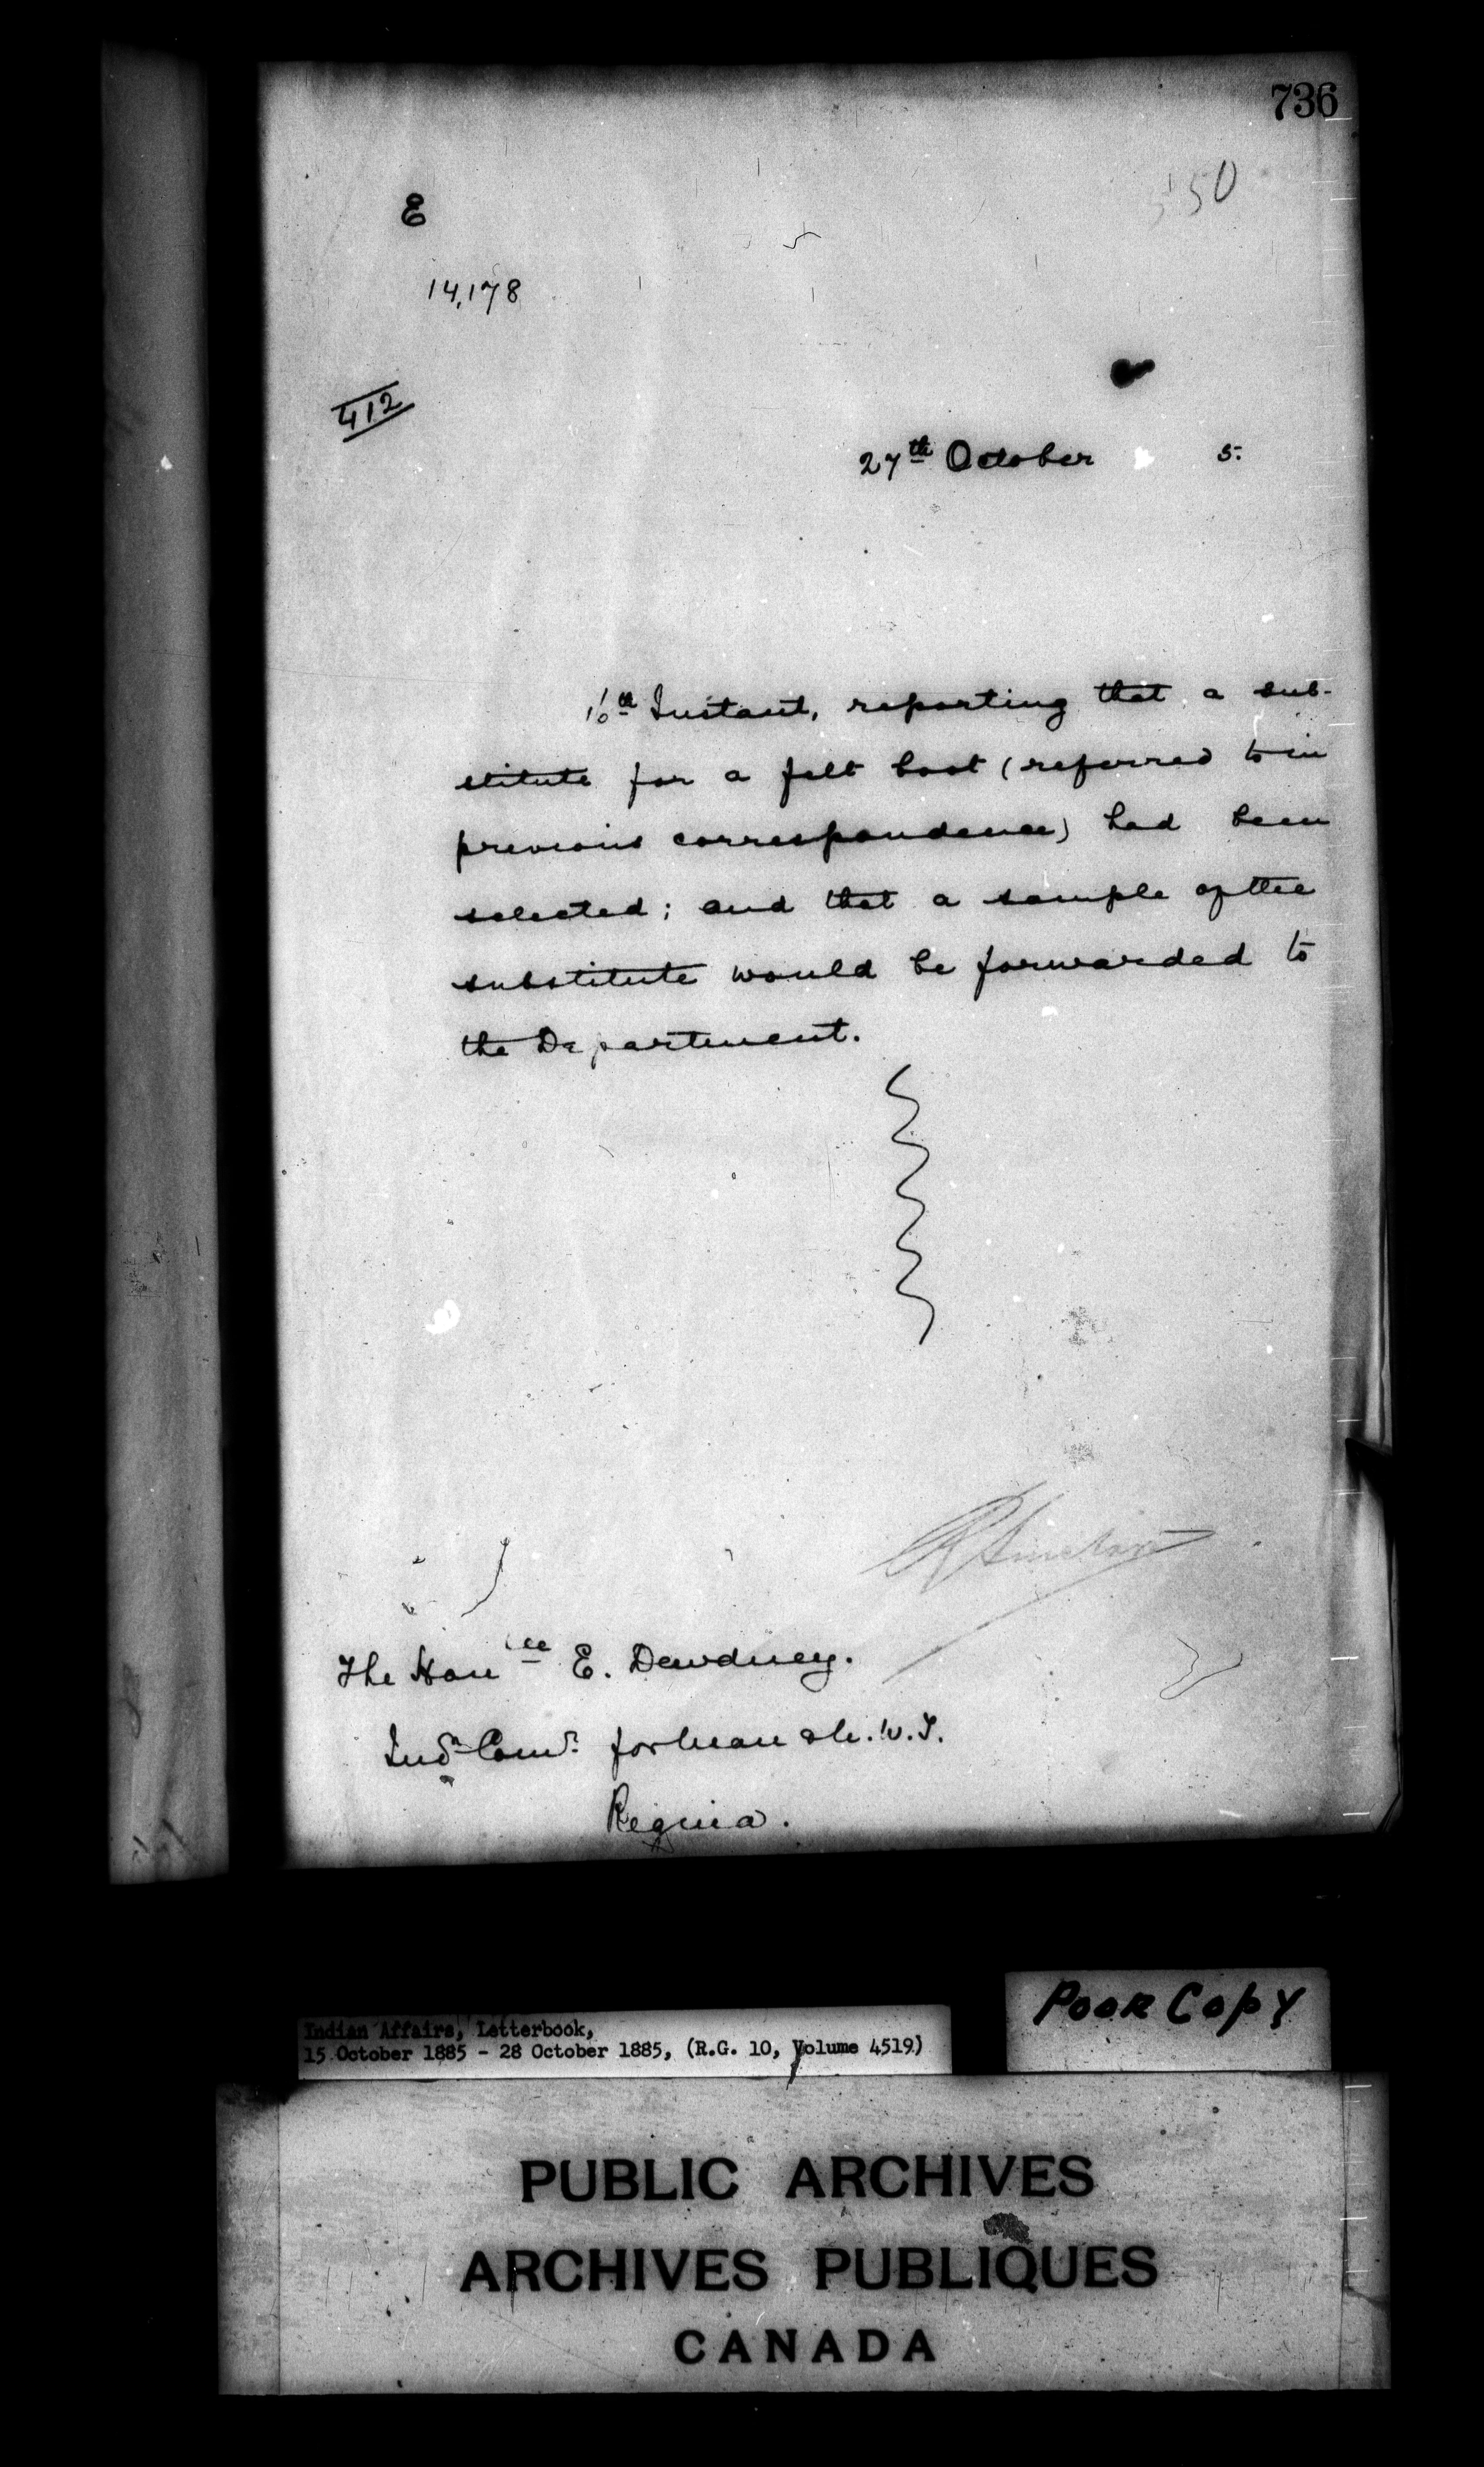 736
550
E
14,178
412
27th October 5.
16th Instant, reporting that a sub-
stitute for a felt boot (referred to in
previous correspondence) had been
selected; and that a sample of the
substitute would be forwarded to
the Department.
The Honble E. Dewdney.
Indn Comr. for Man & N.W.T.
Regina.
Poor Copy
Indian Affairs, Letterbook,
15 October 1885 - 28 October 1885, (R.G. 10, Volume 4519)
PUBLIC ARCHIVES
ARCHIVES PUBLIQUES
CANADA